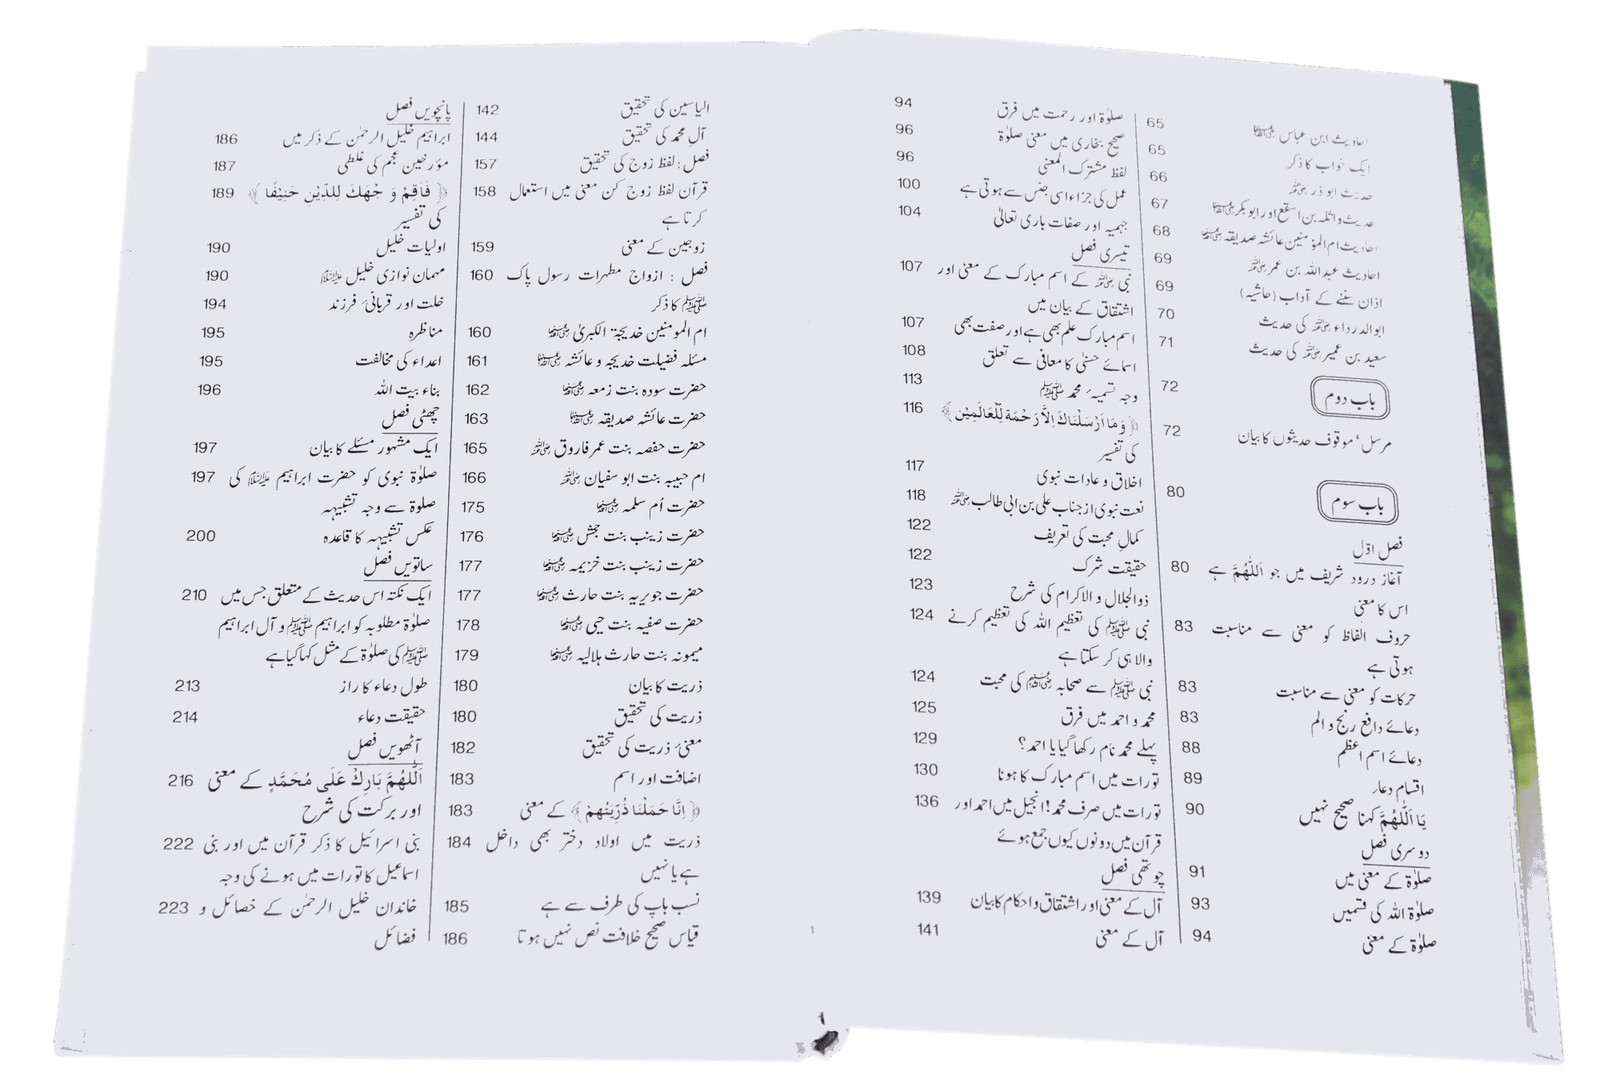 احادیث ابن عباس رضی اللہ عنہما 65
ایک خواب کا ذکر 65
حدیث ابو ذر رضی اللہ عنہ 66
حدیث واثلہ بن اسقع اور ابو بکر رضی اللہ عنہما 67
احادیث ام المؤمنین عائشہ صدیقہ رضی اللہ عنہا 68
احادیث عبداللہ بن عمر رضی اللہ عنہما 69
اذان سننے کے آداب (حاشیہ) 69
ابو الدرداء رضی اللہ عنہ کی حدیث 70
سعید بن عمیر رضی اللہ عنہ کی حدیث 71
باب دوم 72
مرسل، موقوف حدیثوں کا بیان 72
باب سوم 80
فصل اوّل
آغاز درود شریف میں جو اَللّٰهُمَّ ہے 80
اس کا معنی
حروف الفاظ کو معنی سے مناسبت 83
ہوتی ہے
حرکات کو معنی سے مناسبت 83
دعائے دافع رنج و الم 83
دعائے اسم اعظم 88
اقسام دعاء 89
یَا اَللّٰهُمَّ کہنا صحیح نہیں 90
دوسری فصل
صلوٰۃ کے معنی میں 91
صلوٰۃ اللہ کی قسمیں 93
صلوٰۃ کے معنی 94
صلوٰۃ اور رحمت میں فرق 94
صحیح بخاری میں معنی صلوٰۃ 96
لفظ مشترک المعنی 96
عمل کی جزاء اسی جنس سے ہوتی ہے 100
جہمیہ اور صفات باری تعالیٰ 104
تیسری فصل
نبی ﷺ کے اسم مبارک کے معنی اور 107
اشتقاق کے بیان میں
اسم مبارک علم بھی ہے اور صفت بھی 107
اسمائے حسنیٰ کا معانی سے تعلق 108
وجہ تسمیہ محمد ﷺ 113
﴿ وَمَا اَرْسَلْنَاكَ اِلاَّ رَحْمَةً لِّلْعَالَمِيْن ﴾ 116
کی تفسیر
اخلاق و عادات نبوی 117
نعت نبوی از جناب علی بن ابی طالب رضی اللہ عنہ 118
کمالِ محبت کی تعریف 122
حقیقت شرک 122
ذوالجلال والاکرام کی شرح 123
نبی ﷺ کی تعظیم اللہ کی تعظیم کرنے 124
والا ہی کر سکتا ہے
نبی ﷺ سے صحابہ رضی اللہ عنہم کی محبت 124
محمد و احمد میں فرق 125
پہلے محمد نام رکھا گیا یا احمد؟ 129
تورات میں اسم مبارک کا ہونا 130
تورات میں صرف محمد! انجیل میں احمد اور 136
قرآن میں دونوں کیوں جمع ہوئے
چوتھی فصل
آل کے معنی اور اشتقاق و احکام کا بیان 139
آل کے معنی 141
الیاسین کی تحقیق 142
آلِ محمد کی تحقیق 144
فصل: لفظ زوج کی تحقیق 157
قرآن لفظ زوج کن معنی میں استعمال 158
کرتا ہے
زوجین کے معنی 159
فصل : ازواج مطہرات رسول پاک 160
ﷺ کا ذکر
ام المومنین خدیجۃ الکبریٰ رضی اللہ عنہا 160
مسئلہ فضیلت خدیجہ و عائشہ رضی اللہ عنہما 161
حضرت سودہ بنت زمعہ رضی اللہ عنہا 162
حضرت عائشہ صدیقہ رضی اللہ عنہا 163
حضرت حفصہ بنت عمر فاروق رضی اللہ عنہما 165
ام حبیبہ بنت ابو سفیان رضی اللہ عنہا 166
حضرت اُم سلمہ رضی اللہ عنہا 175
حضرت زینب بنت جحش رضی اللہ عنہا 176
حضرت زینب بنت خزیمہ رضی اللہ عنہا 177
حضرت جویریہ بنت حارث رضی اللہ عنہا 177
حضرت صفیہ بنت حیی رضی اللہ عنہا 178
میمونہ بنت حارث ہلالیہ رضی اللہ عنہا 179
ذریت کا بیان 180
ذریت کی تحقیق 180
معنیٔ ذریت کی تحقیق 182
اضافت اور اسم 183
﴿ اِنَّا حَمَلْنَا ذُرِّيَّتَهُمْ ﴾ کے معنی 183
ذریت میں اولاد دختر بھی داخل 184
ہے یا نہیں
نسب باپ کی طرف سے ہے 185
قیاس صحیح خلافت نص نہیں ہوتا 186
پانچویں فصل
ابراہیم خلیل الرحمٰن کے ذکر میں 186
مؤرخین عجم کی غلطی 187
﴿ فَاَقِمْ وَ جْهَكَ لِلدِّيْنِ حَنِيْفًا ﴾ 189
کی تفسیر
اولیات خلیل 190
مہمان نوازی خلیل علیہ السلام 190
خلت اور قربانیٔ فرزند 194
مناظرہ 195
اعداء کی مخالفت 195
بناء بیت اللہ 196
چھٹی فصل
ایک مشہور مسئلے کا بیان 197
صلوٰۃ نبوی کو حضرت ابراہیم علیہ السلام کی 197
صلوۃ سے وجہ تشبیہہ
عکس تشبیہہ کا قاعدہ 200
ساتویں فصل
ایک نکتہ اس حدیث کے متعلق جس میں 210
صلوٰۃ مطلوبہ کو ابراہیم ﷺ و آل ابراہیم
ﷺ کی صلوٰۃ کے مثل کہا گیا ہے
طول دعاء کا راز 213
حقیقت دعاء 214
آٹھویں فصل
اَللّٰهُمَّ بَارِكْ عَلَى مُحَمَّدٍ کے معنی 216
اور برکت کی شرح
بنی اسرائیل کا ذکر قرآن میں اور بنی 222
اسماعیل کا تورات میں ہونے کی وجہ
خاندان خلیل الرحمٰن کے خصائل و 223
فضائل